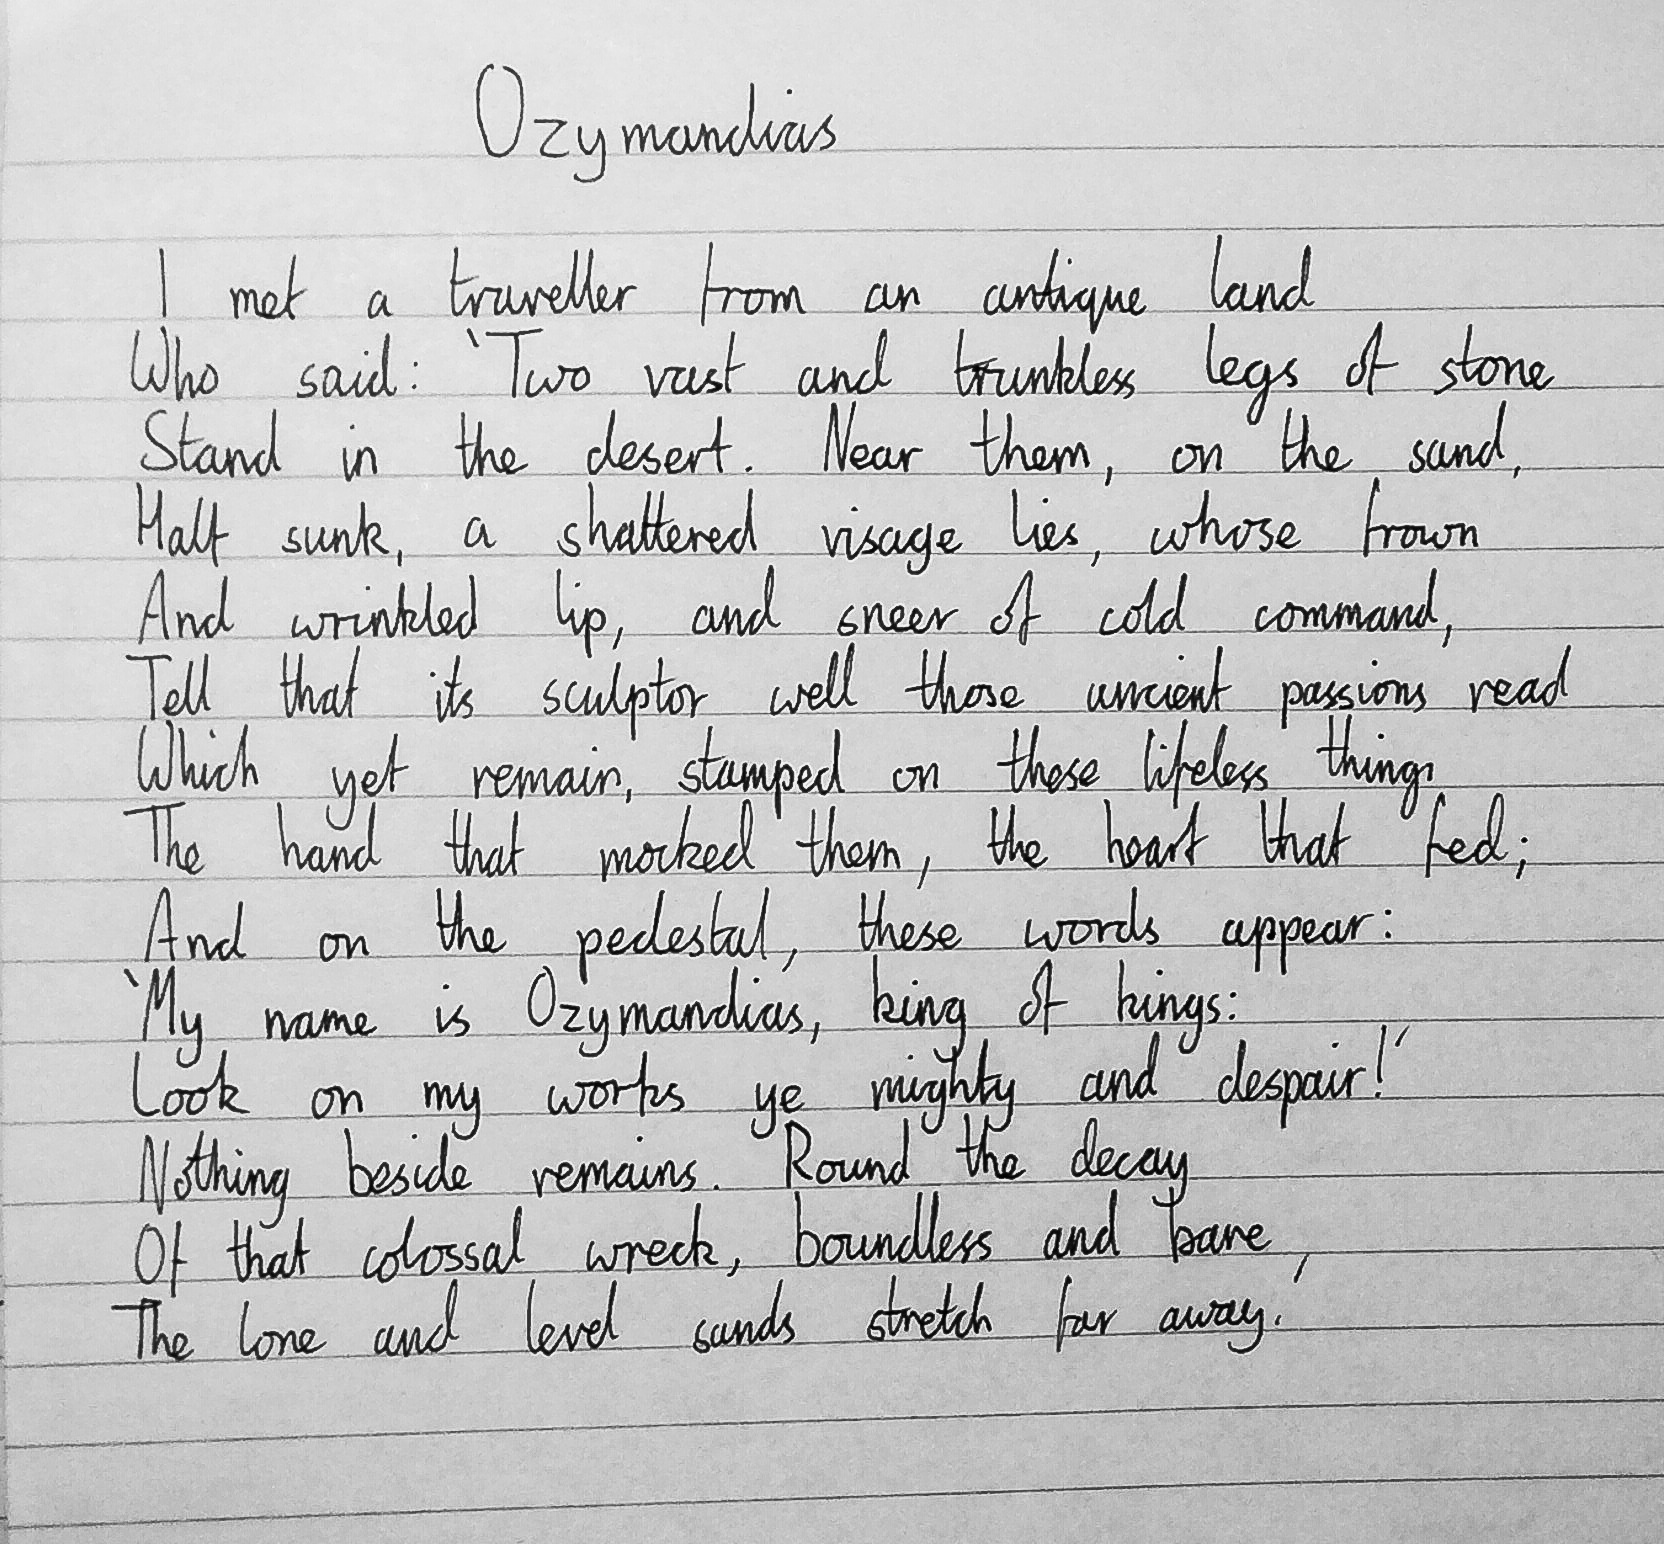 Ozymandias
I met a traveller from an antique land
Who said: 'Two vast and trunkless legs of stone
Stand in the desert. Near them, on the sand,
Half sunk, a shattered visage lies, whose frown
And wrinkled lip, and sneer of cold command,
Tell that its sculptor well those ancient passions read
Which yet remain, stamped on these lifeless things
The hand that mocked them, the heart that fed;
And on the pedestal, these words appear:
'My name is Ozymandias, king of kings:
Look on my works ye mighty and despair!'
Nothing beside remains. Round the decay
Of that colossal wreck, boundless and bare,
The lone and level sands stretch far away.'